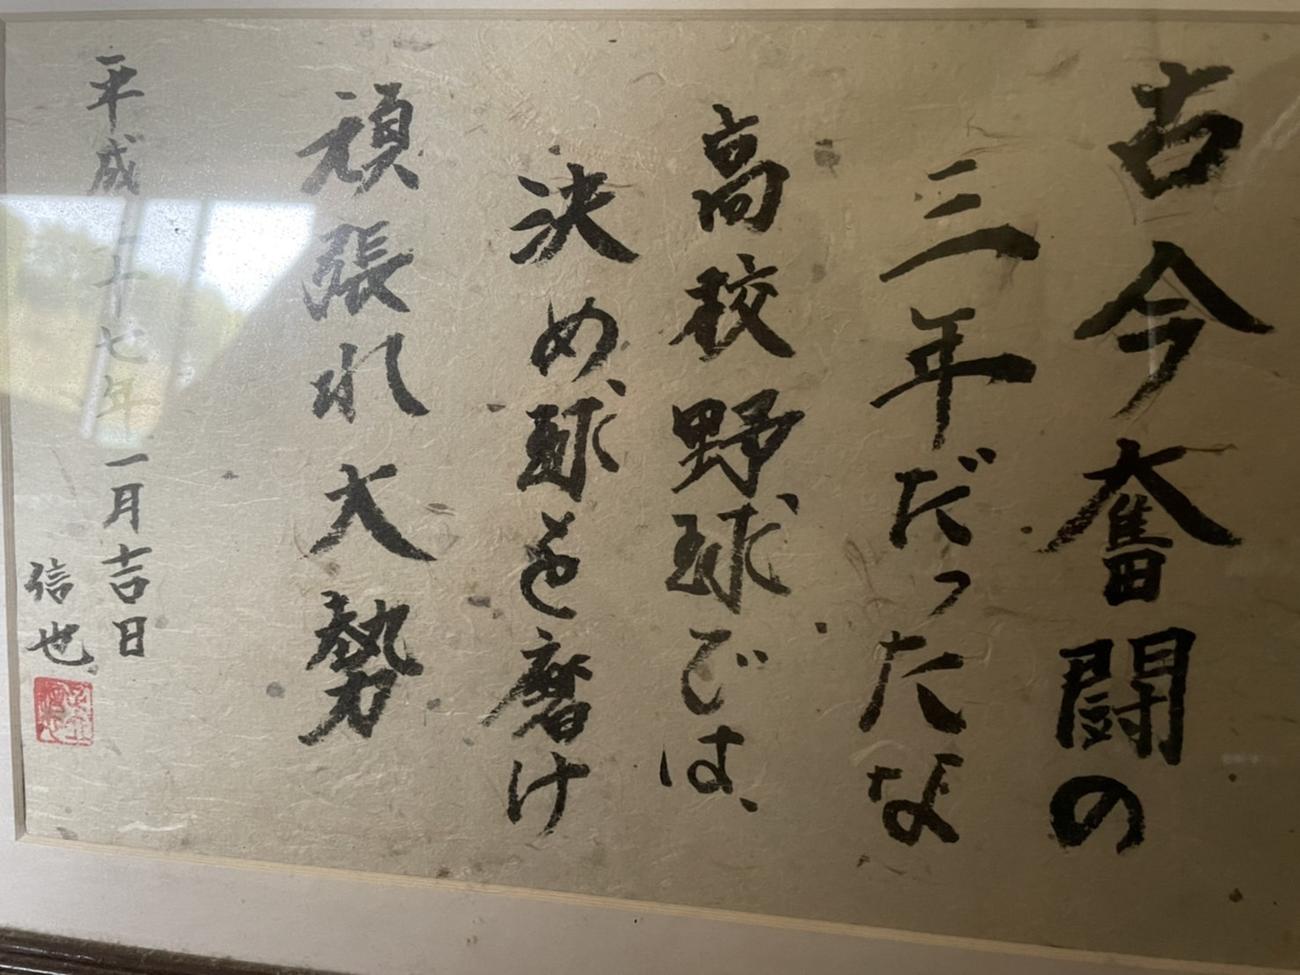 古今奮闘の
三年だったな
高校野球では、
決め球を磨け
頑張れ大勢
平成二十七年一月吉日
信也